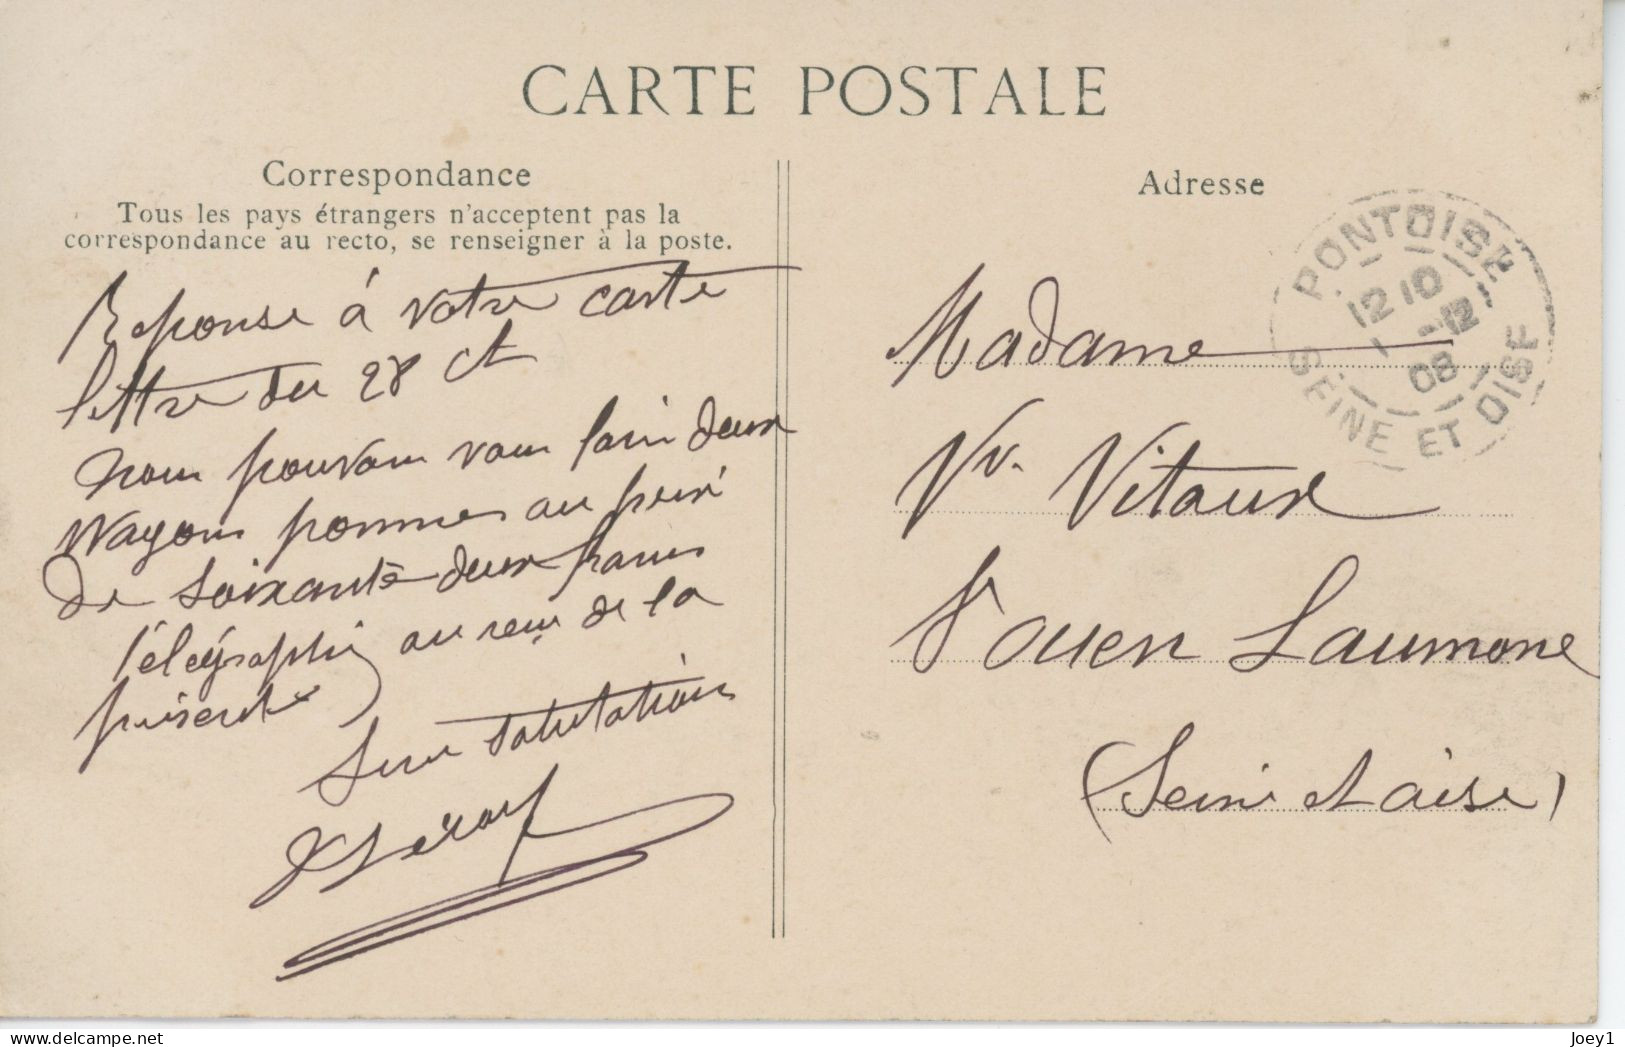 CARTE POSTALE
Correspondance
Tous les pays étrangers n'acceptent pas la
correspondance au recto, se renseigner à la poste.
Reponse à votre carte
lettre du 28 ct
nous pouvons vous fair deux
Wagons pommes au prix
de soixante deux francs
télégraphi au reçu de la
présente
salutations
Adresse
Madame
Vv. Vitaux
St ouen Laumone
(Seine et oise)
PONTOISE
12 10
1 -12
08
SEINE ET OISE
Joey1